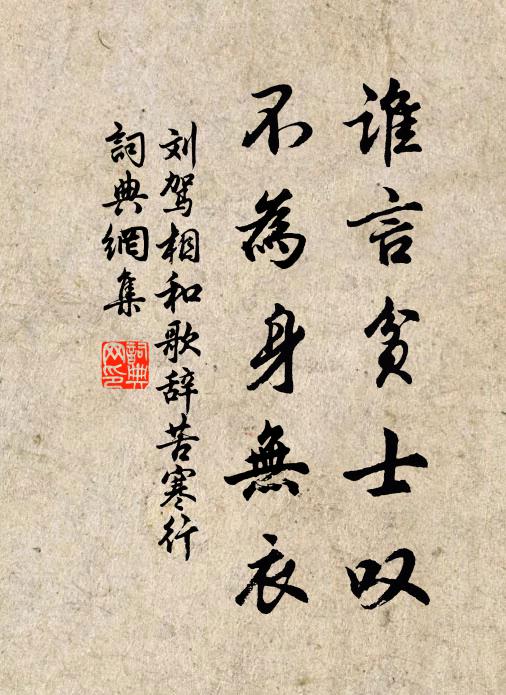 谁言貧士叹
不為身無衣
刘驾相和歌辞苦寒行
詞典網集
詞典
网印